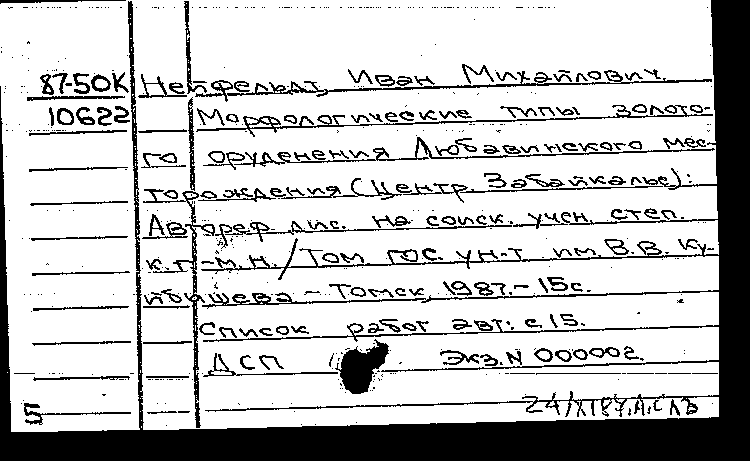 87-50К Нейфельдт, Иван Михайлович.
10622 Морфологические типы золото-
го оруденения Любавинского мес-
торождения (Центр. Забайкалье):
Автореф. дис. на соиск. учен. степ.
к.г.-м.н. / Том. гос. ун-т им. В.В. Ку-
йбышева - Томск, 1987. - 15с.
Список работ авт.: с.15.
ДСП Экз. N 000002